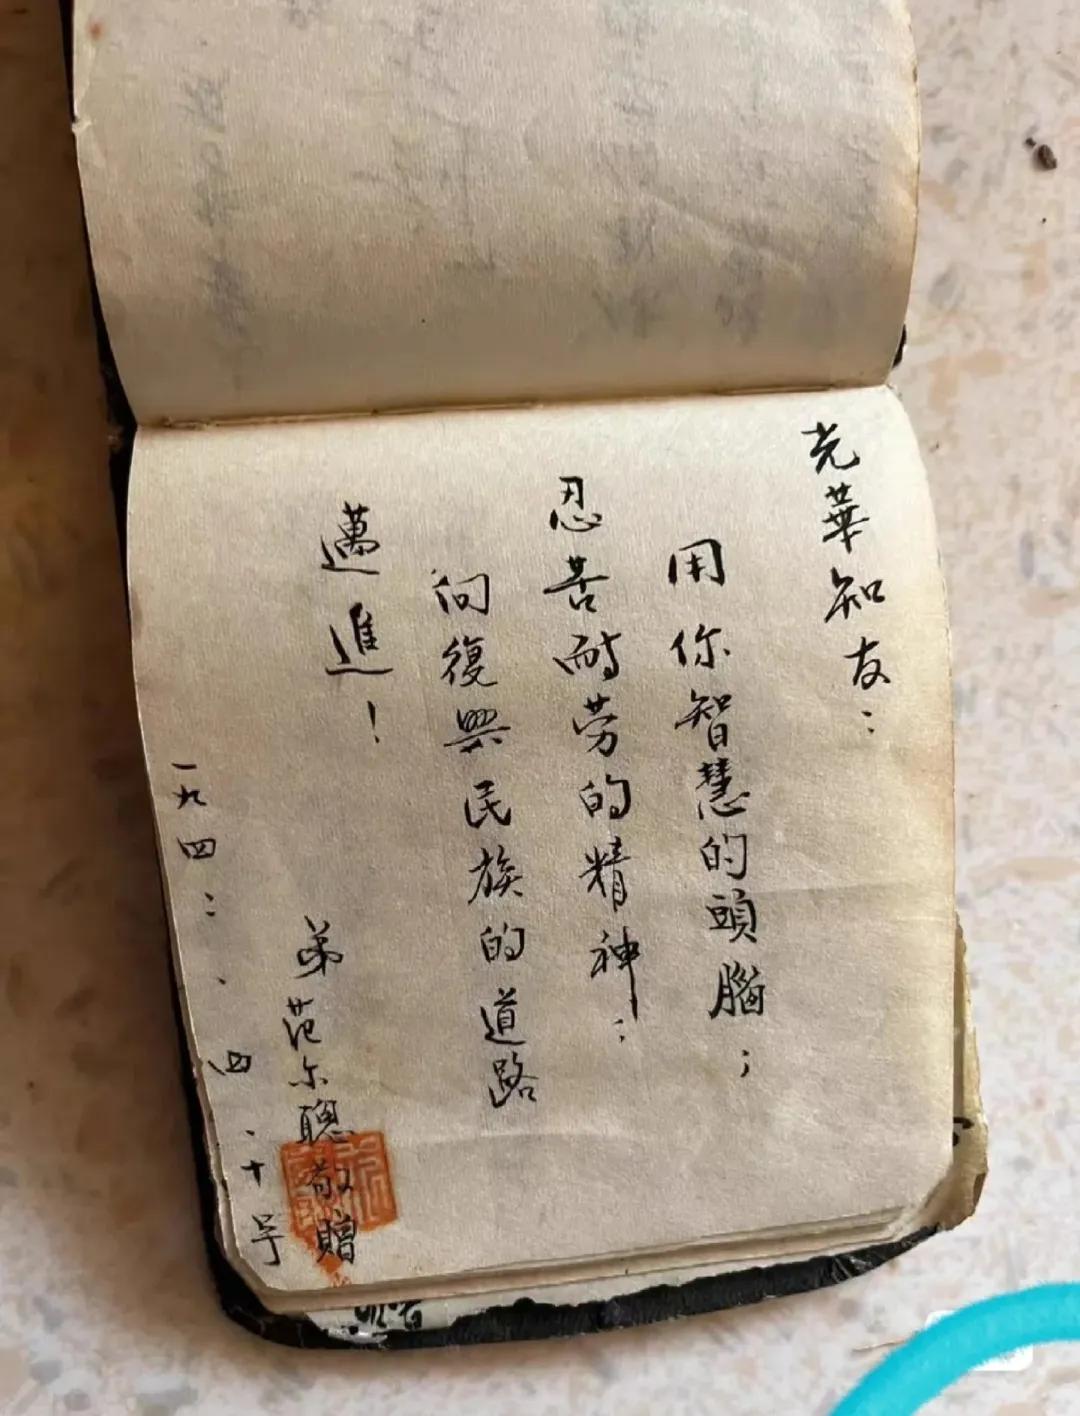 光華知友：
用你智慧的頭腦；
忍苦耐劳的精神：
向復興民族的道路
邁進！
弟范尔聰敬贈
一九四：、四、十号